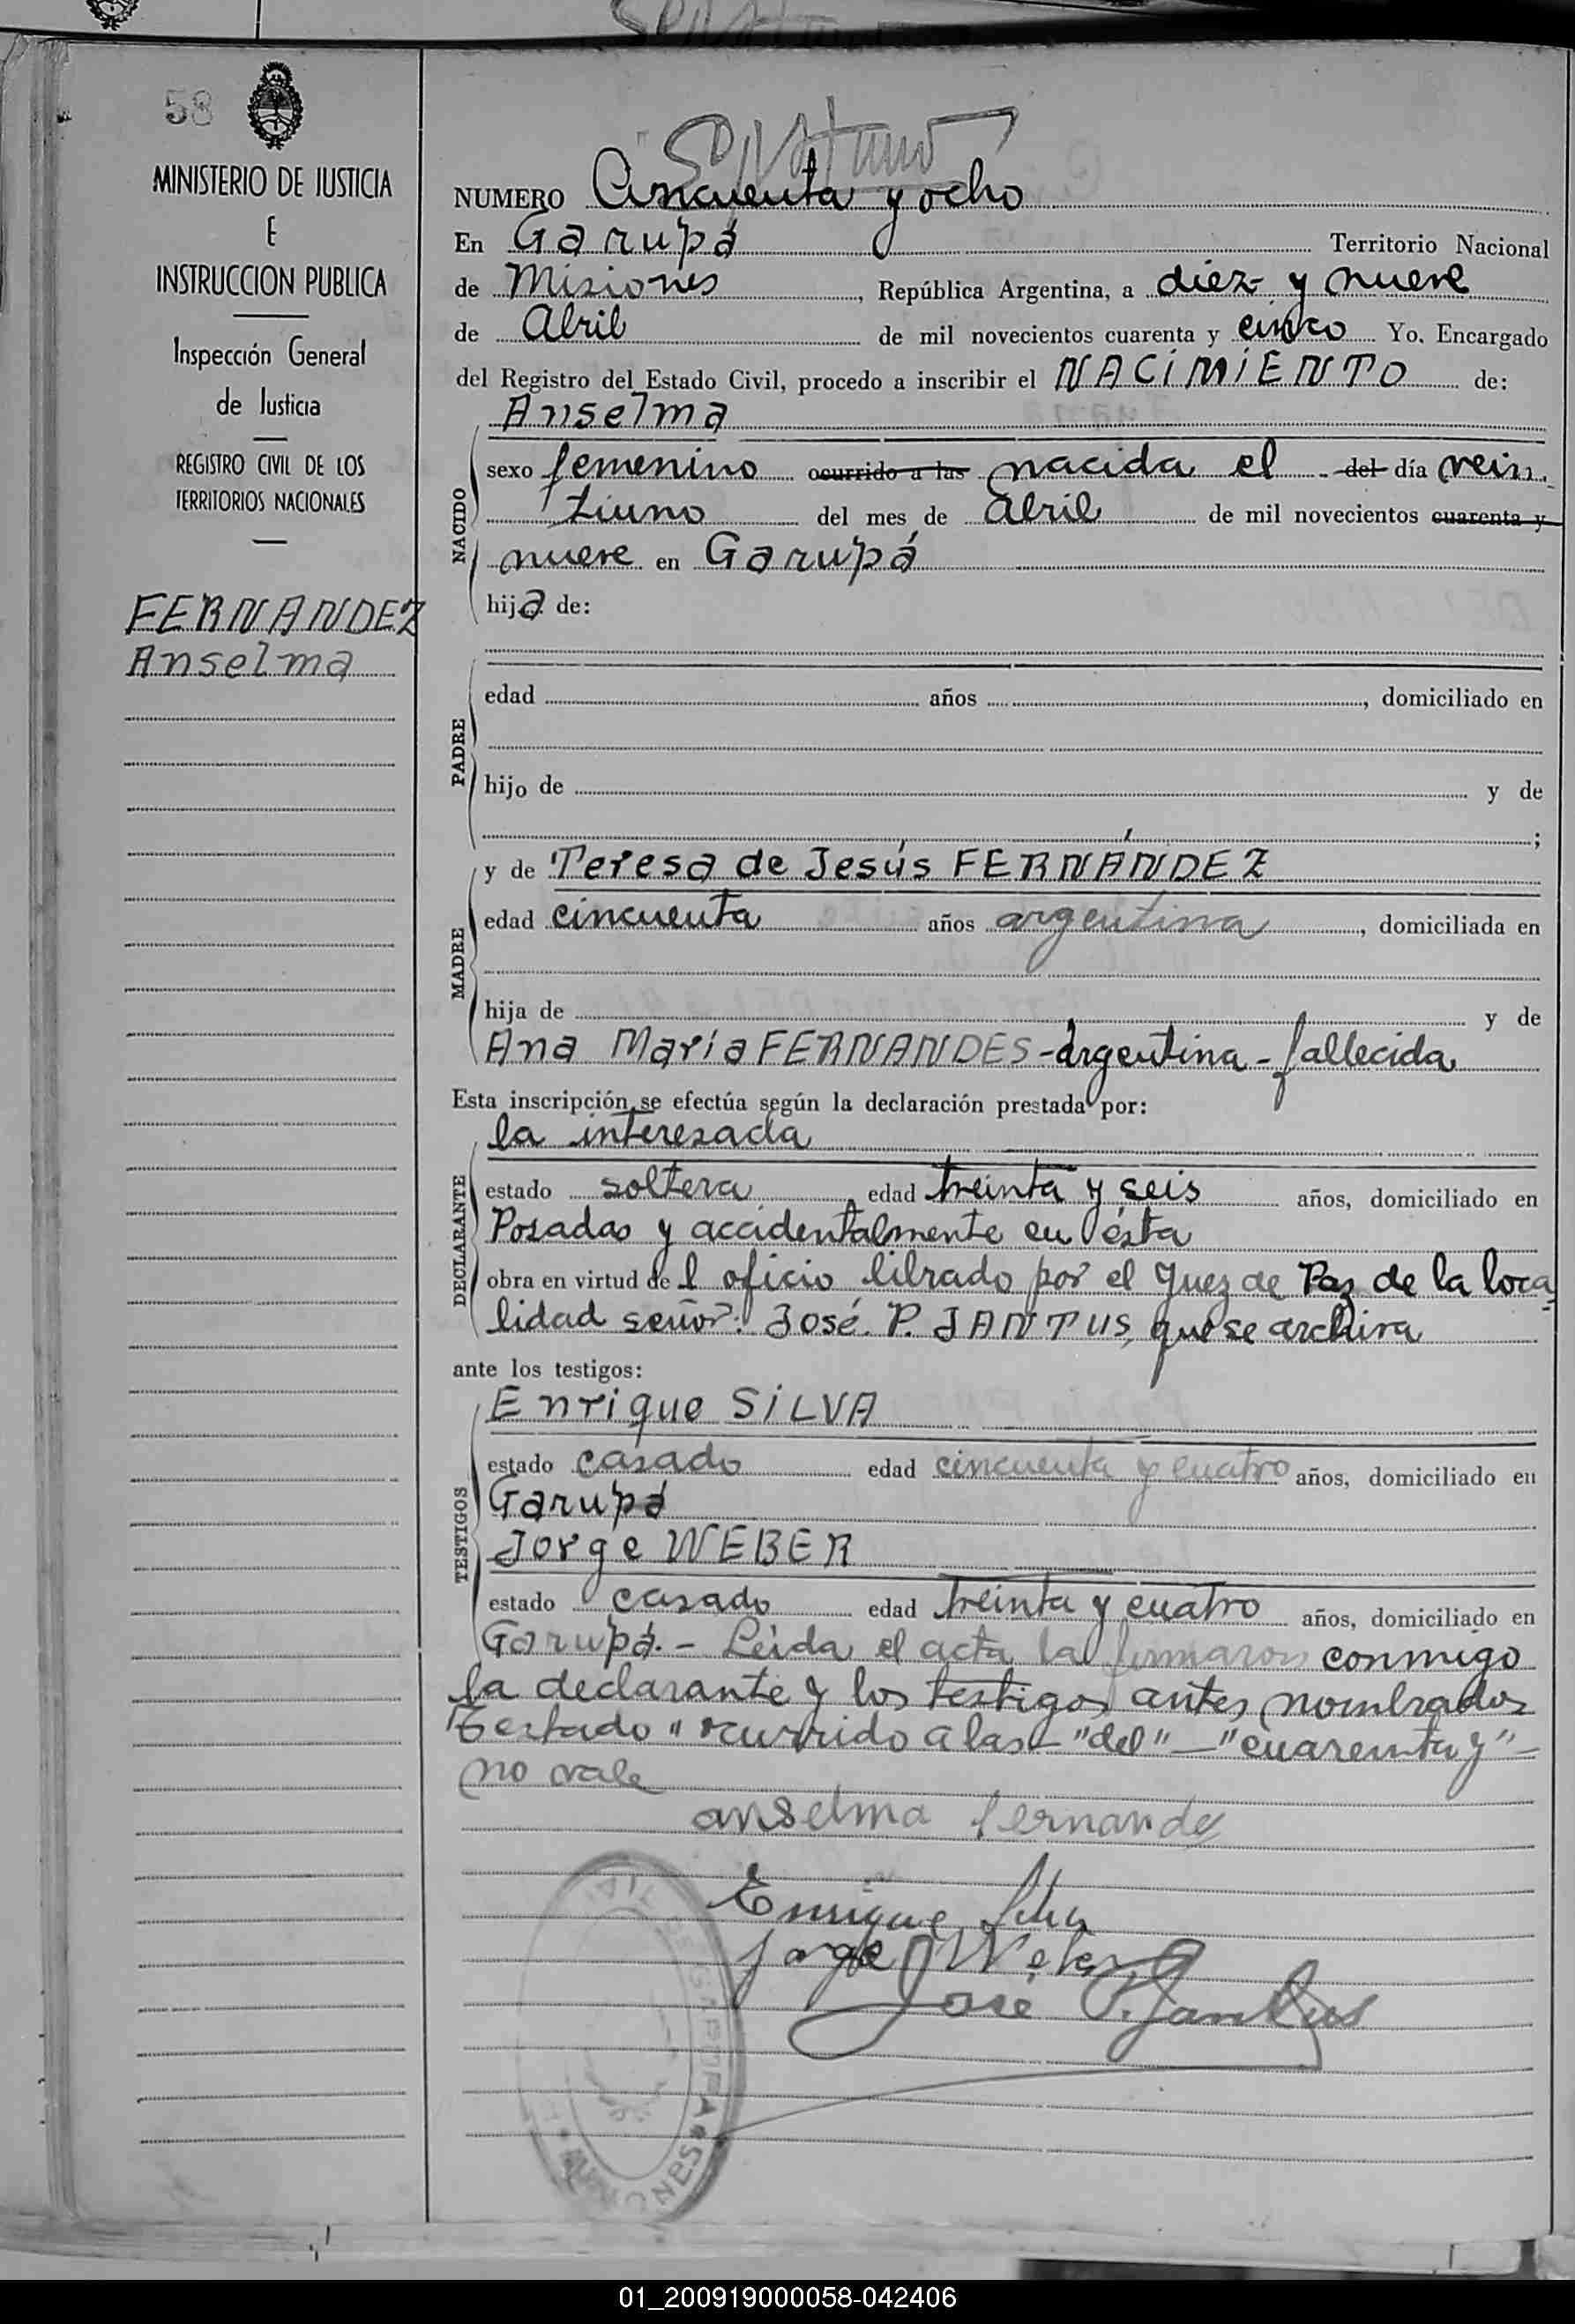 58
MINISTERIO DE JUSTICIA
E
INSTRUCCION PUBLICA
Inspección General
de Justicia
REGISTRO CIVIL DE LOS
TERRITORIOS NACIONALES
FERNANDEZ
Anselma
NUMERO Cincuenta y ocho
En Garupá Territorio Nacional
de Misiones, República Argentina, a diez y nueve
de Abril de mil novecientos cuarenta y cinco Yo. Encargado
del Registro del Estado Civil, procedo a inscribir el NACIMIENTO de:
NACIDO
Anselma
sexo femenino ocurrido a las nacida el del día vein
tiuno del mes de abril de mil novecientos cuarenta y
nueve en Garupá
hija de:
PADRE
edad años , domiciliado en
hijo de y de
;
MADRE
y de Teresa de Jesús FERNÁNDEZ
edad cincuenta años argentina, domiciliada en
hija de y de
Ana María FERNANDES - Argentina - fallecida
Esta inscripción se efectúa según la declaración prestada por:
DECLARANTE
la interesada
estado soltera, edad treinta y seis años, domiciliado en
Posadas y accidentalmente en ésta
obra en virtud del oficio librado por el Juez de Paz de la loca
lidad señor: José. P. JANTUS, que se archiva
ante los testigos:
TESTIGOS
Enrique SILVA
estado casado edad cincuenta y cuatro años, domiciliado en
Garupá
Jorge WEBER
estado casado edad treinta y cuatro años, domiciliado en
Garupá. - Leida el acta la firmaron conmigo
la declarante y los testigos antes nombrados
Testado "ocurrido a las - "del" - "cuarenta y" -
no vale
anselma fernandez
Enrique Silva
Jorge Weber
José P. Jantus
01_200919000058-042406